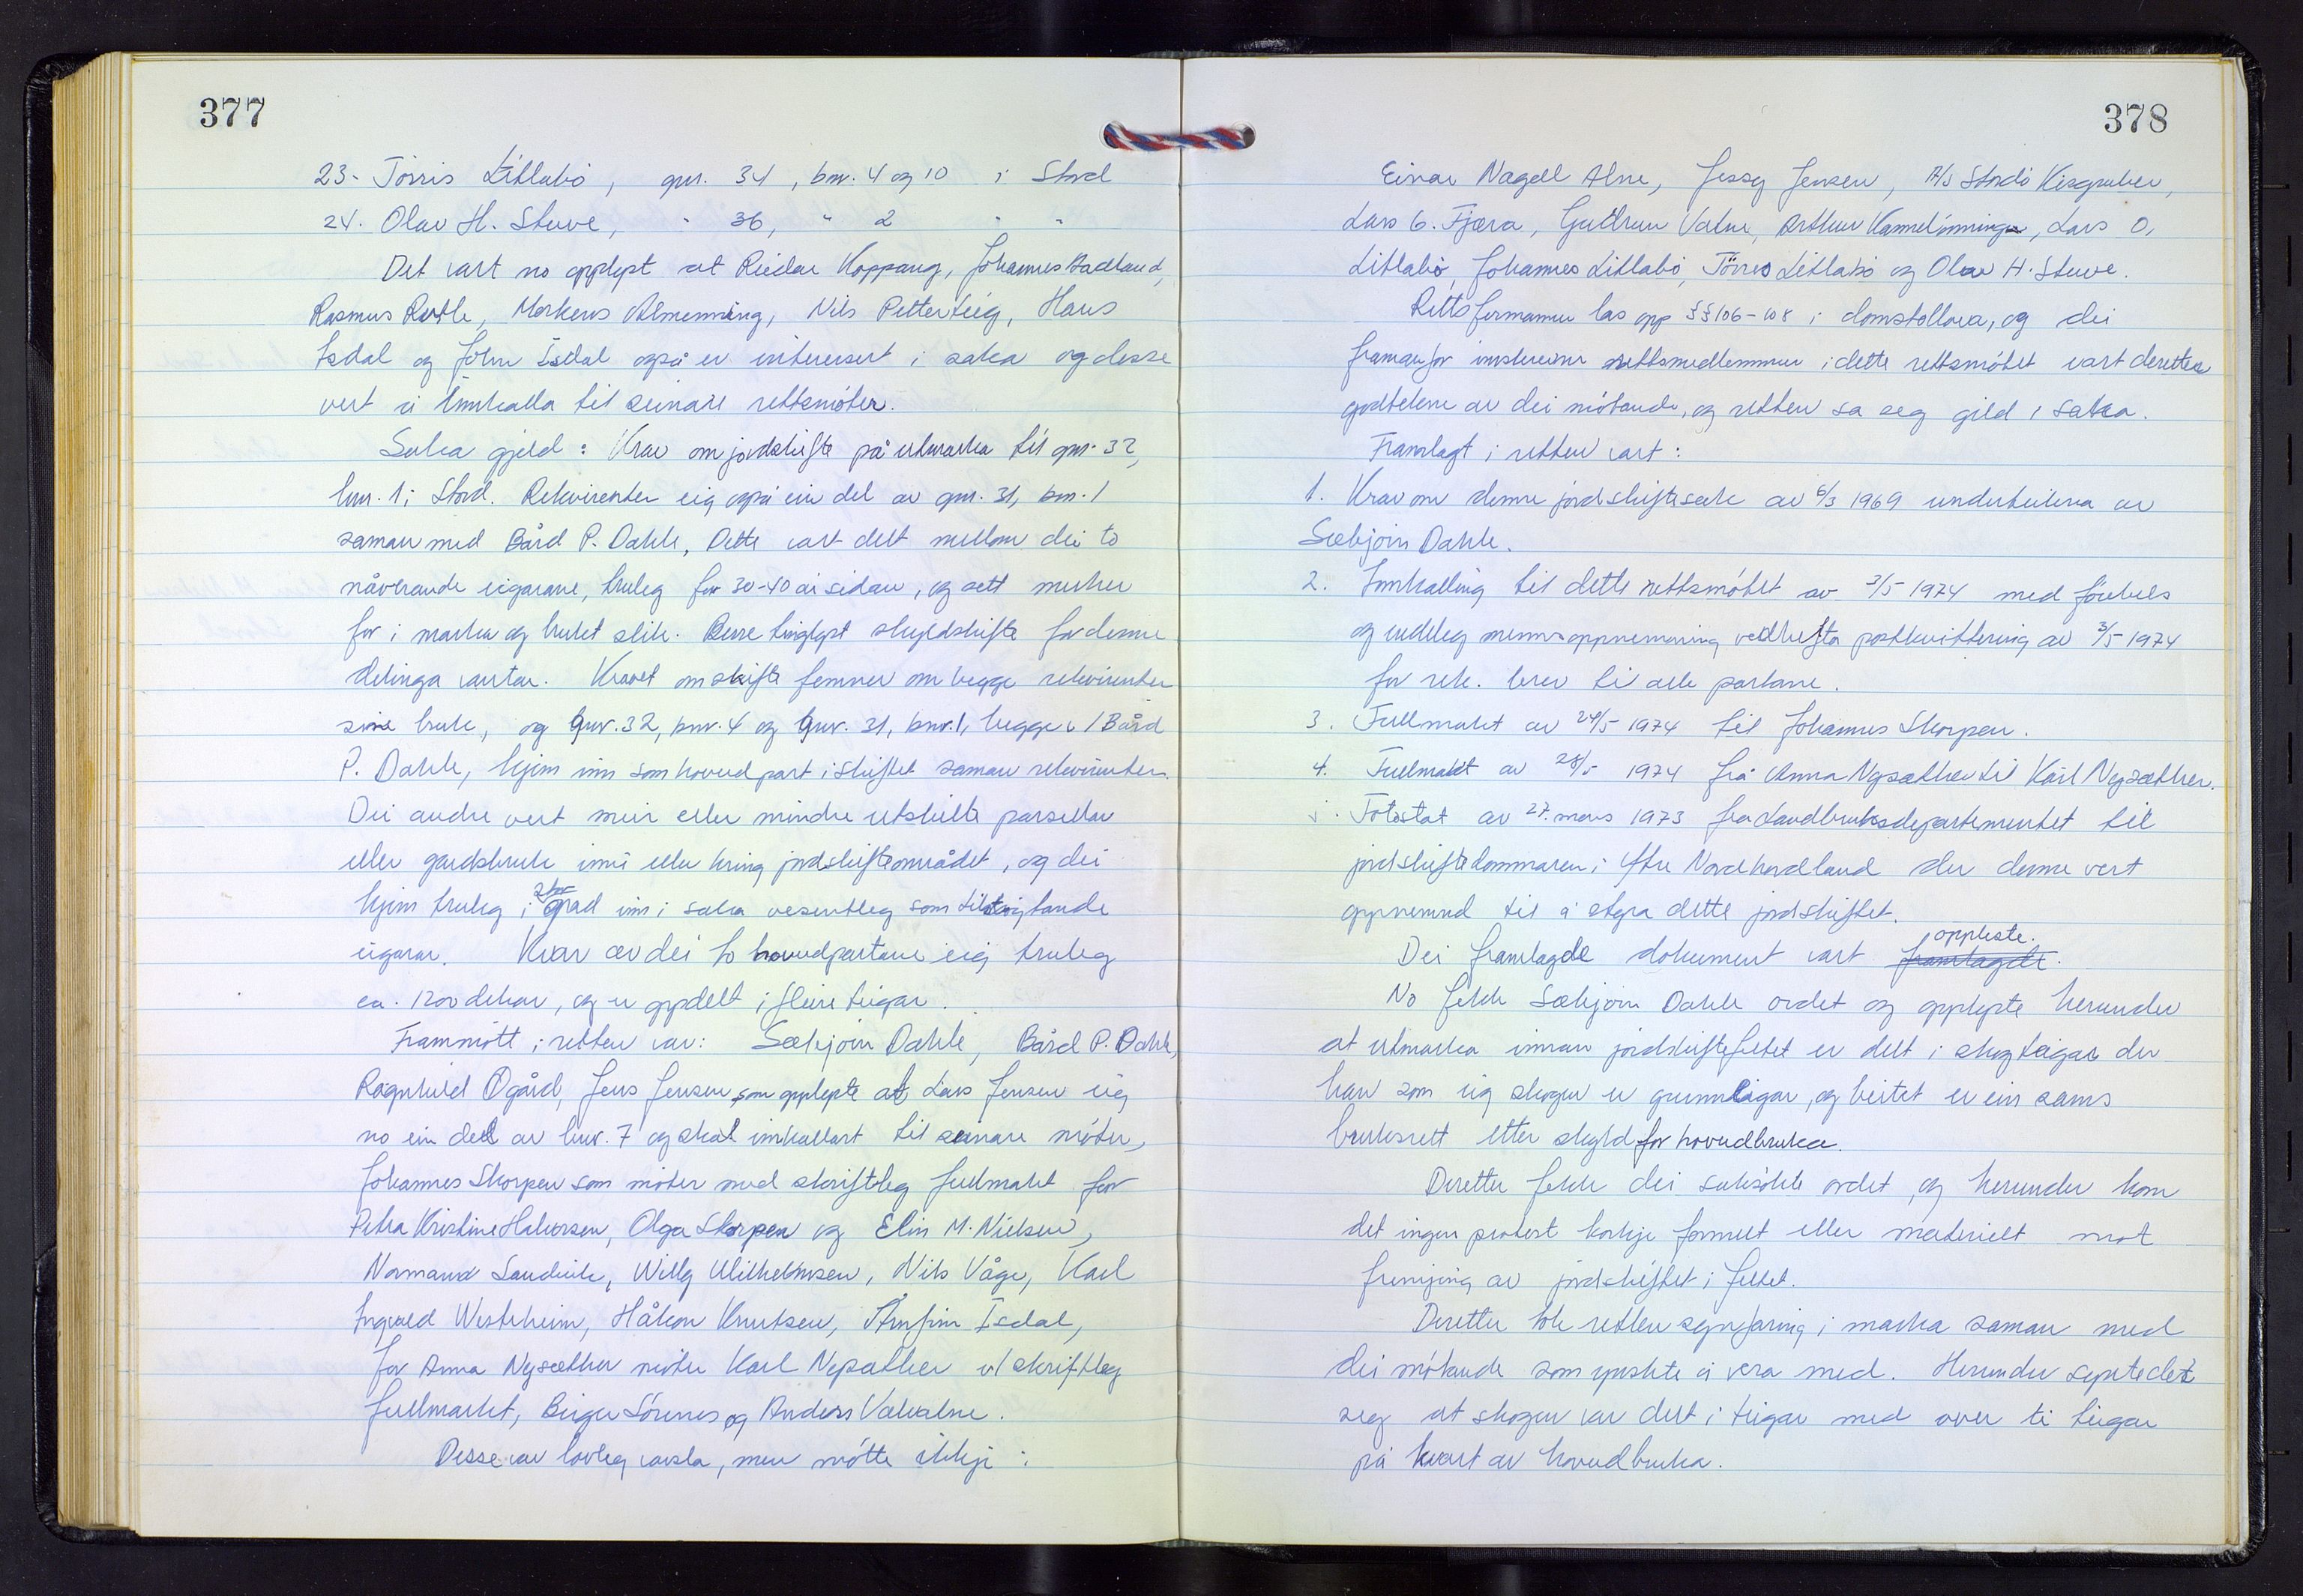 377
23. Törris Litlabö, gnr. 34, bnr. 4 og 10 i Stord
24. Olav H. Stuve, " 36, " 2 " "
Det vart no opplyst at Reidar Koppang, Johannes Aadland,
Rasmus Røtle, Markus Almenning, Nils Petterteig, Hans
Isdal og John Isdal også er interesert i saka og desse
vert å innkalla til seinare rettsmöter.
Saka gjeld: Krav om jordskifte på utmarka til gnr. 32,
bnr. 1 i Stord. Rekvirenten eig også ein del av gnr. 31, bnr. 1
saman med Bård P. Dahle, Dette vart delt mellom dei to
nåverande eigarane, truleg for 30-40 år sidan, og sett merker
for i marka og brukt slik. Berre tinglyst skyldskifte for denne
delinga vantar. Kravet om skifte femner om begge rekvirenten
sine bruk, og gnr. 32, bnr. 4 og gnr. 31, bnr. 1, begge i / Bård
P. Dahle, kjem inn som hovudpart i skiftet saman rekvirenten.
Dei andre vert meir eller mindre utskilte parsellar
eller gardsbruk inni eller kring jordskifteområdet, og dei
kjem truleg i stor grad inn i saka vesentleg som tilstøytande
eigarar. Kvar av dei to hovudpartane eig truleg
ca. 1200 dekar, og er oppdelt i fleire teigar.
Frammött i retten var: Sæbjörn Dahle, Bård P. Dahle,
Ragnhild Ögård, Jens Jensen som opplyste at Lars Jensen eig
no ein del av bnr. 7 og skal innkallast til seinare möter,
Johannes Skorpen som möter med skriftleg fullmakt for
Petra Kristine Halvorsen, Olga Skorpen og Elin M. Nielsen,
Normann Sandvik, Willy Wilhelmsen, Nils Våge, Karl
Ingvald Westrheim, Håkon Knutsen, Arnfinn Isdal,
for Anna Nysæther möter Karl Nysæther v/ skriftleg
fullmakt, Birger Sörenes og Anders Valvatne.
Desse var lovleg varsla, men mötte ikkje:
378
Einar Nagell Alne, Jessy Jensen, A/S Stordö Kisgruber,
Lars G. Fjæra, Gudrun Valne, Arthur Kannelönning, Lars O.
Litlabö, Johannes Litlabö, Törres Litlabö og Olav H. Stuve.
Rettsformannen las opp §§ 106-108 i domstollova, og dei
framanfor innskrevne rettsmedlemmer i dette rettsmötet vart deretter
godtekne av dei mötande, og retten sa seg gild i saka.
Framlagt i retten vart:
1. Krav om denne jordskiftesak av 6/3 1969 underteikna av
Sæbjörn Dahle.
2. Innkalling til dette rettsmötet av 3/5 1974 med förebels
og endeleg mennsoppnemning vedhefta postkvittering av 3/5 1974
for rek. brev til alle partane.
3. Fullmakt av 24/5 1974 til Johannes Skorpen.
4. Fullmakt av 28/5 1974 frå Anna Nysæther til Karl Nysæther.
5. Fotostat av 27. mars 1973 fra Landbruksdepartementet til
jordskiftedommaren i Ytre Nordhordland der denne vert
oppnemnd til å styra dette jordskiftet.
Dei framlagde dokument vart framlagde oppleste.
No fekk Sæbjörn Dahle ordet og opplyste herunder
at utmarka innan jordskiftefeltet er delt i skogteigar der
han som eig skogen er grunneigar, og beitet er ein sams
bruksrett etter skyld for hovudbruka.
Deretter fekk dei saksökte ordet, og herunder kom
det ingen protest korkje formelt eller materielt mot
fremjing av jordskiftet i feltet.
Deretter tok retten synfaring i marka saman med
dei mötande som ynskte å vera med. Herunder synte det
seg at skogen var delt i teigar med over ti teigar
på kvart av hovudbruka.